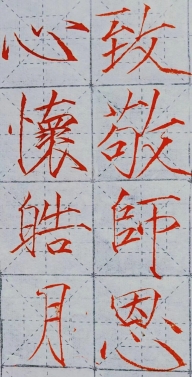 致敬師恩
心懷皓月